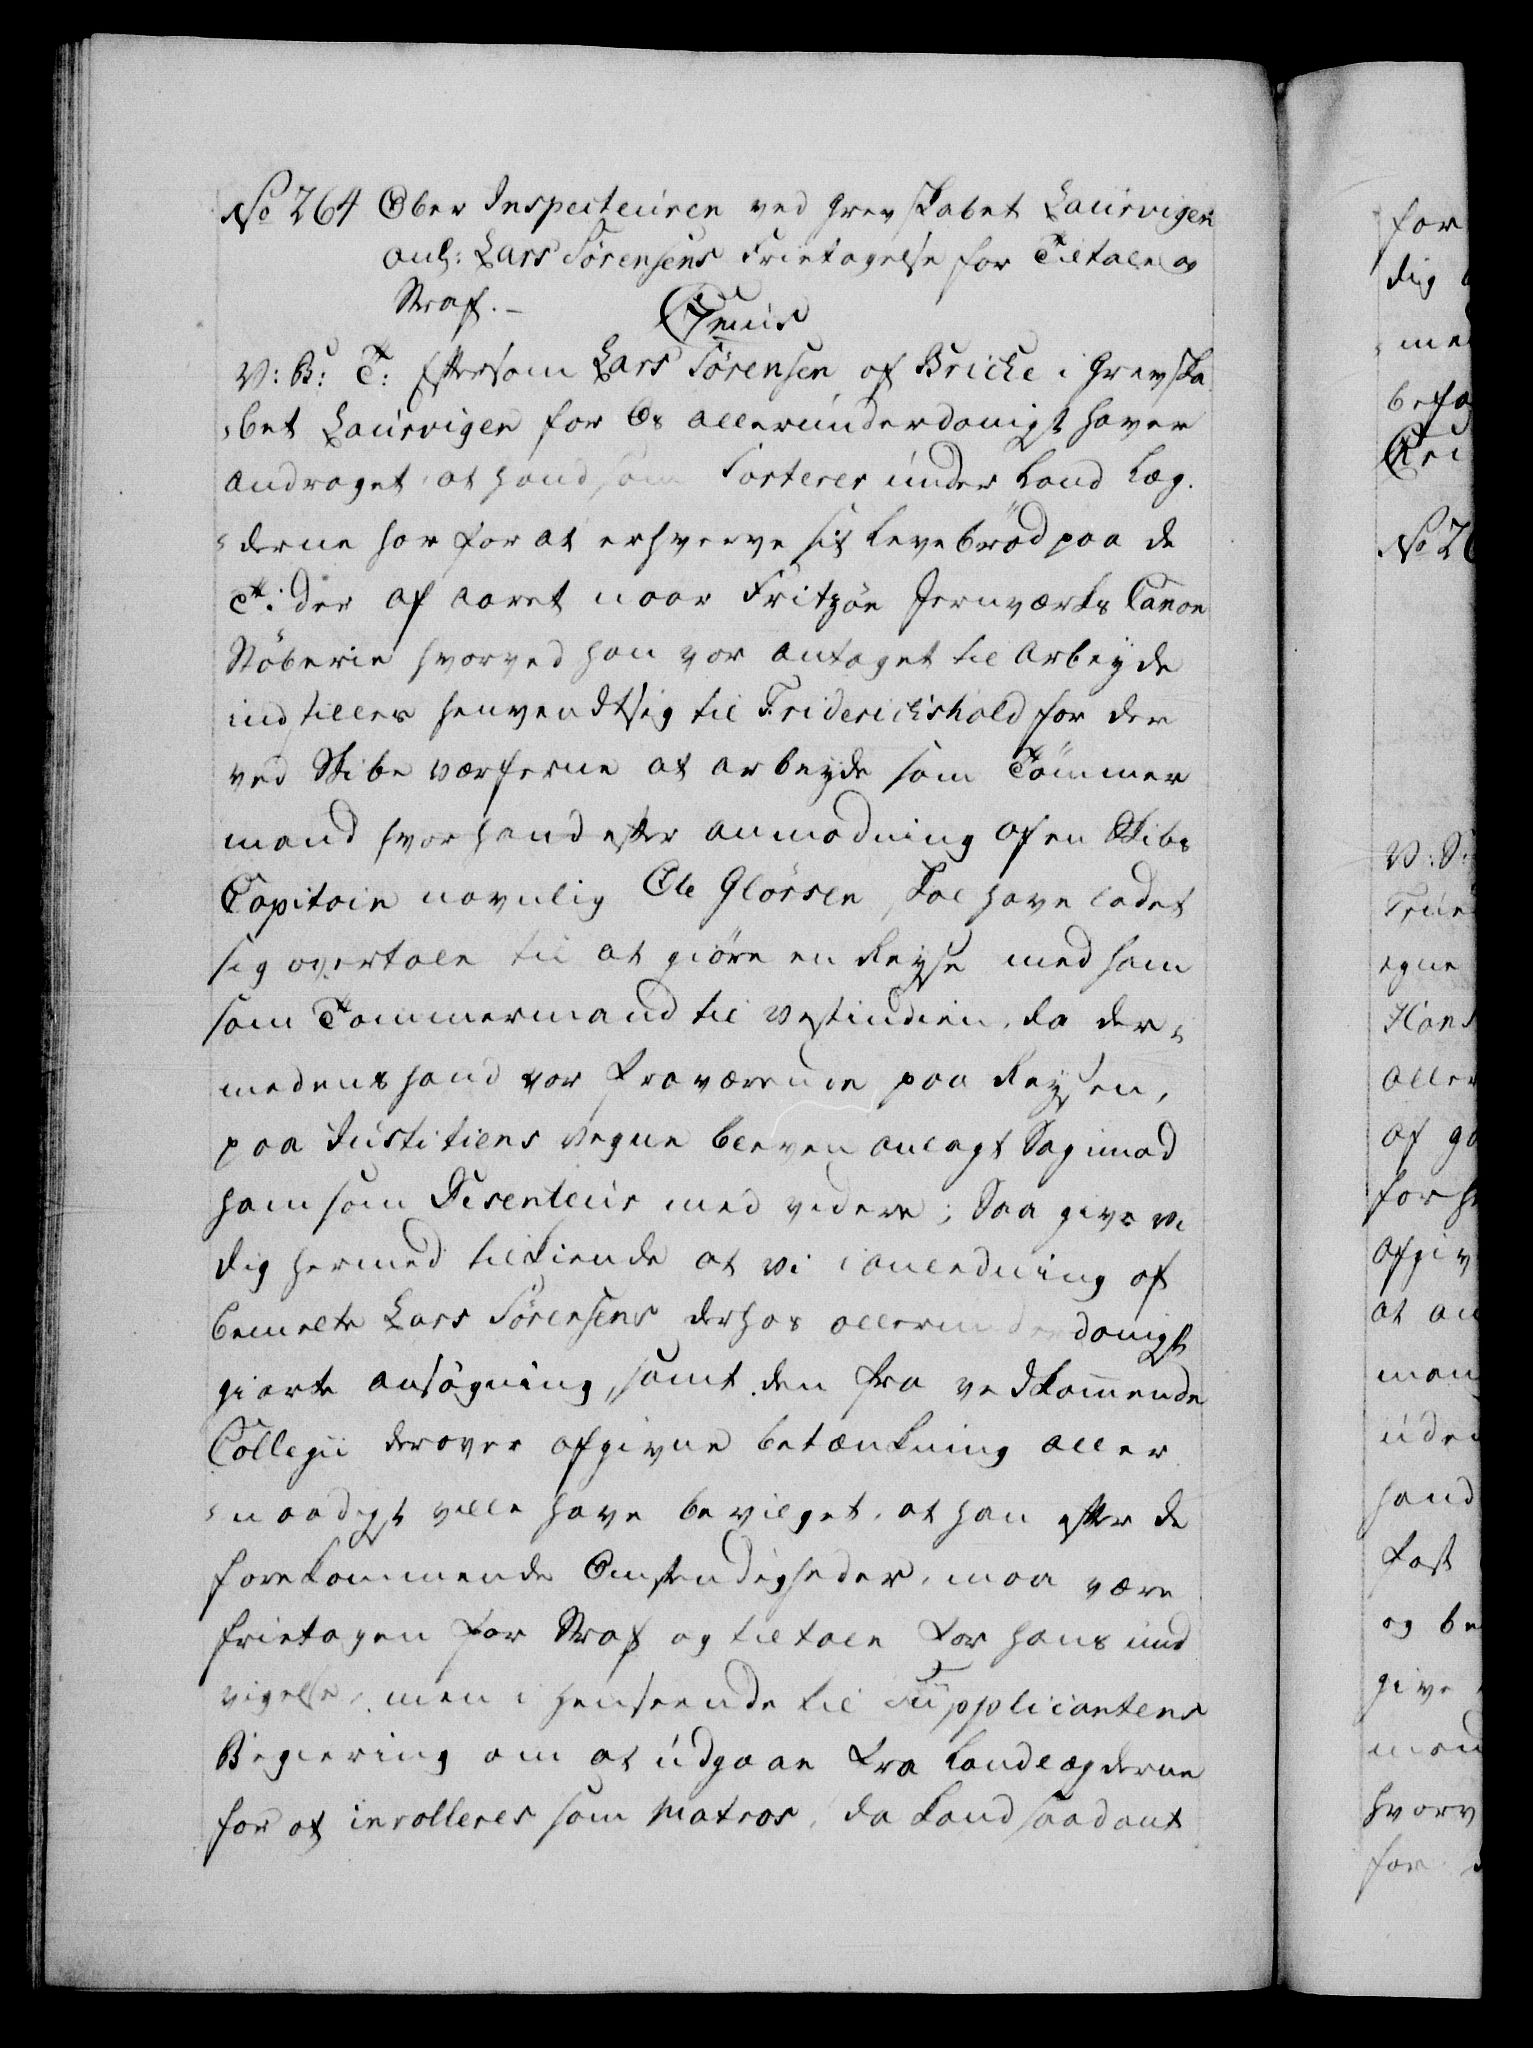 No 264 Ober Inspecteuren ved Grevskabet Laurvigen
anl: Lars Sørensens Frietagelse for Tiltale og
Straf. -
V: B: T: Eftersom Lars Sørensen af Bricke i Grevska
bet Laurvigen for Os allerunderdanigst haver
andraget, at hand som Sorterer under Land Læg-
derne har for at erhverve sit Levebrød paa de
Tider af Aaret naar Fritzøe Jernværks Canon
Støberie hvorved han var antaget til Arbeyde
indstilles henvendt sig til Friderichshald for der
ved Skibs værfterne at arbeyde som Tømmer
mand hvor hand efter anmodning af en Skibs
Capitain navnlig Ole Glørsen, skal have ladet
sig overtale til at giøre en Reyse med ham
som Tømmermand til Vestindien, da der,
medens hand var fraværende paa Reysen,
paa Justitiens vegne bleven anlagt Sag imod
ham som Deserteur med videre; Saa give vi
dig hermed tilkiende at vi i anledning af
bemelte Lars Sørensens derhos allerunderdanigst
giorte ansøgning, samt den fra vedkommende
Collegii derover afgivne betænkning aller
naadigst ville have bevilget, at han efter de
forekommende Omstendigheder, maa være
frietagen for Straf og tiltale for hans und
vigelse, men i henseende til Supplicantens
Begiering om at udgaae fra Landlægderne
for at inrolleres som Matros, da kand saadant
for
dig
med
befa
No 26
V: S:
egne
Hans
aller
af
for
afgiv
at an
man
uden
hand
fast
og be
give
mand
hvorv
for